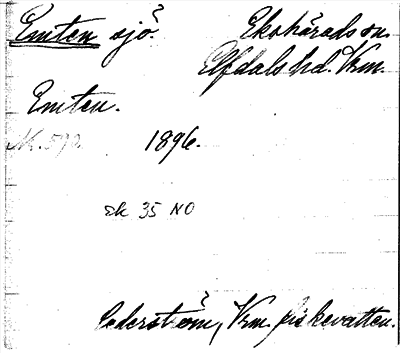 Emten sjö
Ekshärads sn.
Elfdals hd. Vrm.
Emten.
N. 592
1896.
Ek 35 NO
Cederström, Vrm. fiskevatten.